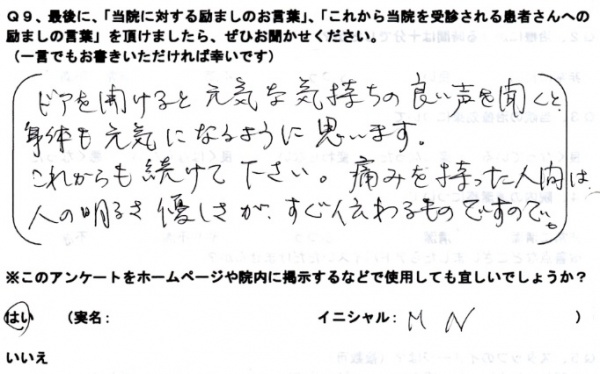 Ｑ９．最後に、「当院に対する励ましのお言葉」、「これから当院を受診される患者さんへの
励ましの言葉」を頂けましたら、ぜひお聞かせください。
（一言でもお書きいただければ幸いです）
ドアを開けると 元気な気持ちの良い声を聞くと
身体も元気になるように思います。
これからも続けて下さい。痛みを持った人間は
人の明るさ優しさが、すぐ伝わるものですので。
※このアンケートをホームページや院内に掲示するなどで使用しても宜しいでしょうか？
はい （実名： イニシャル： M N ）
いいえ